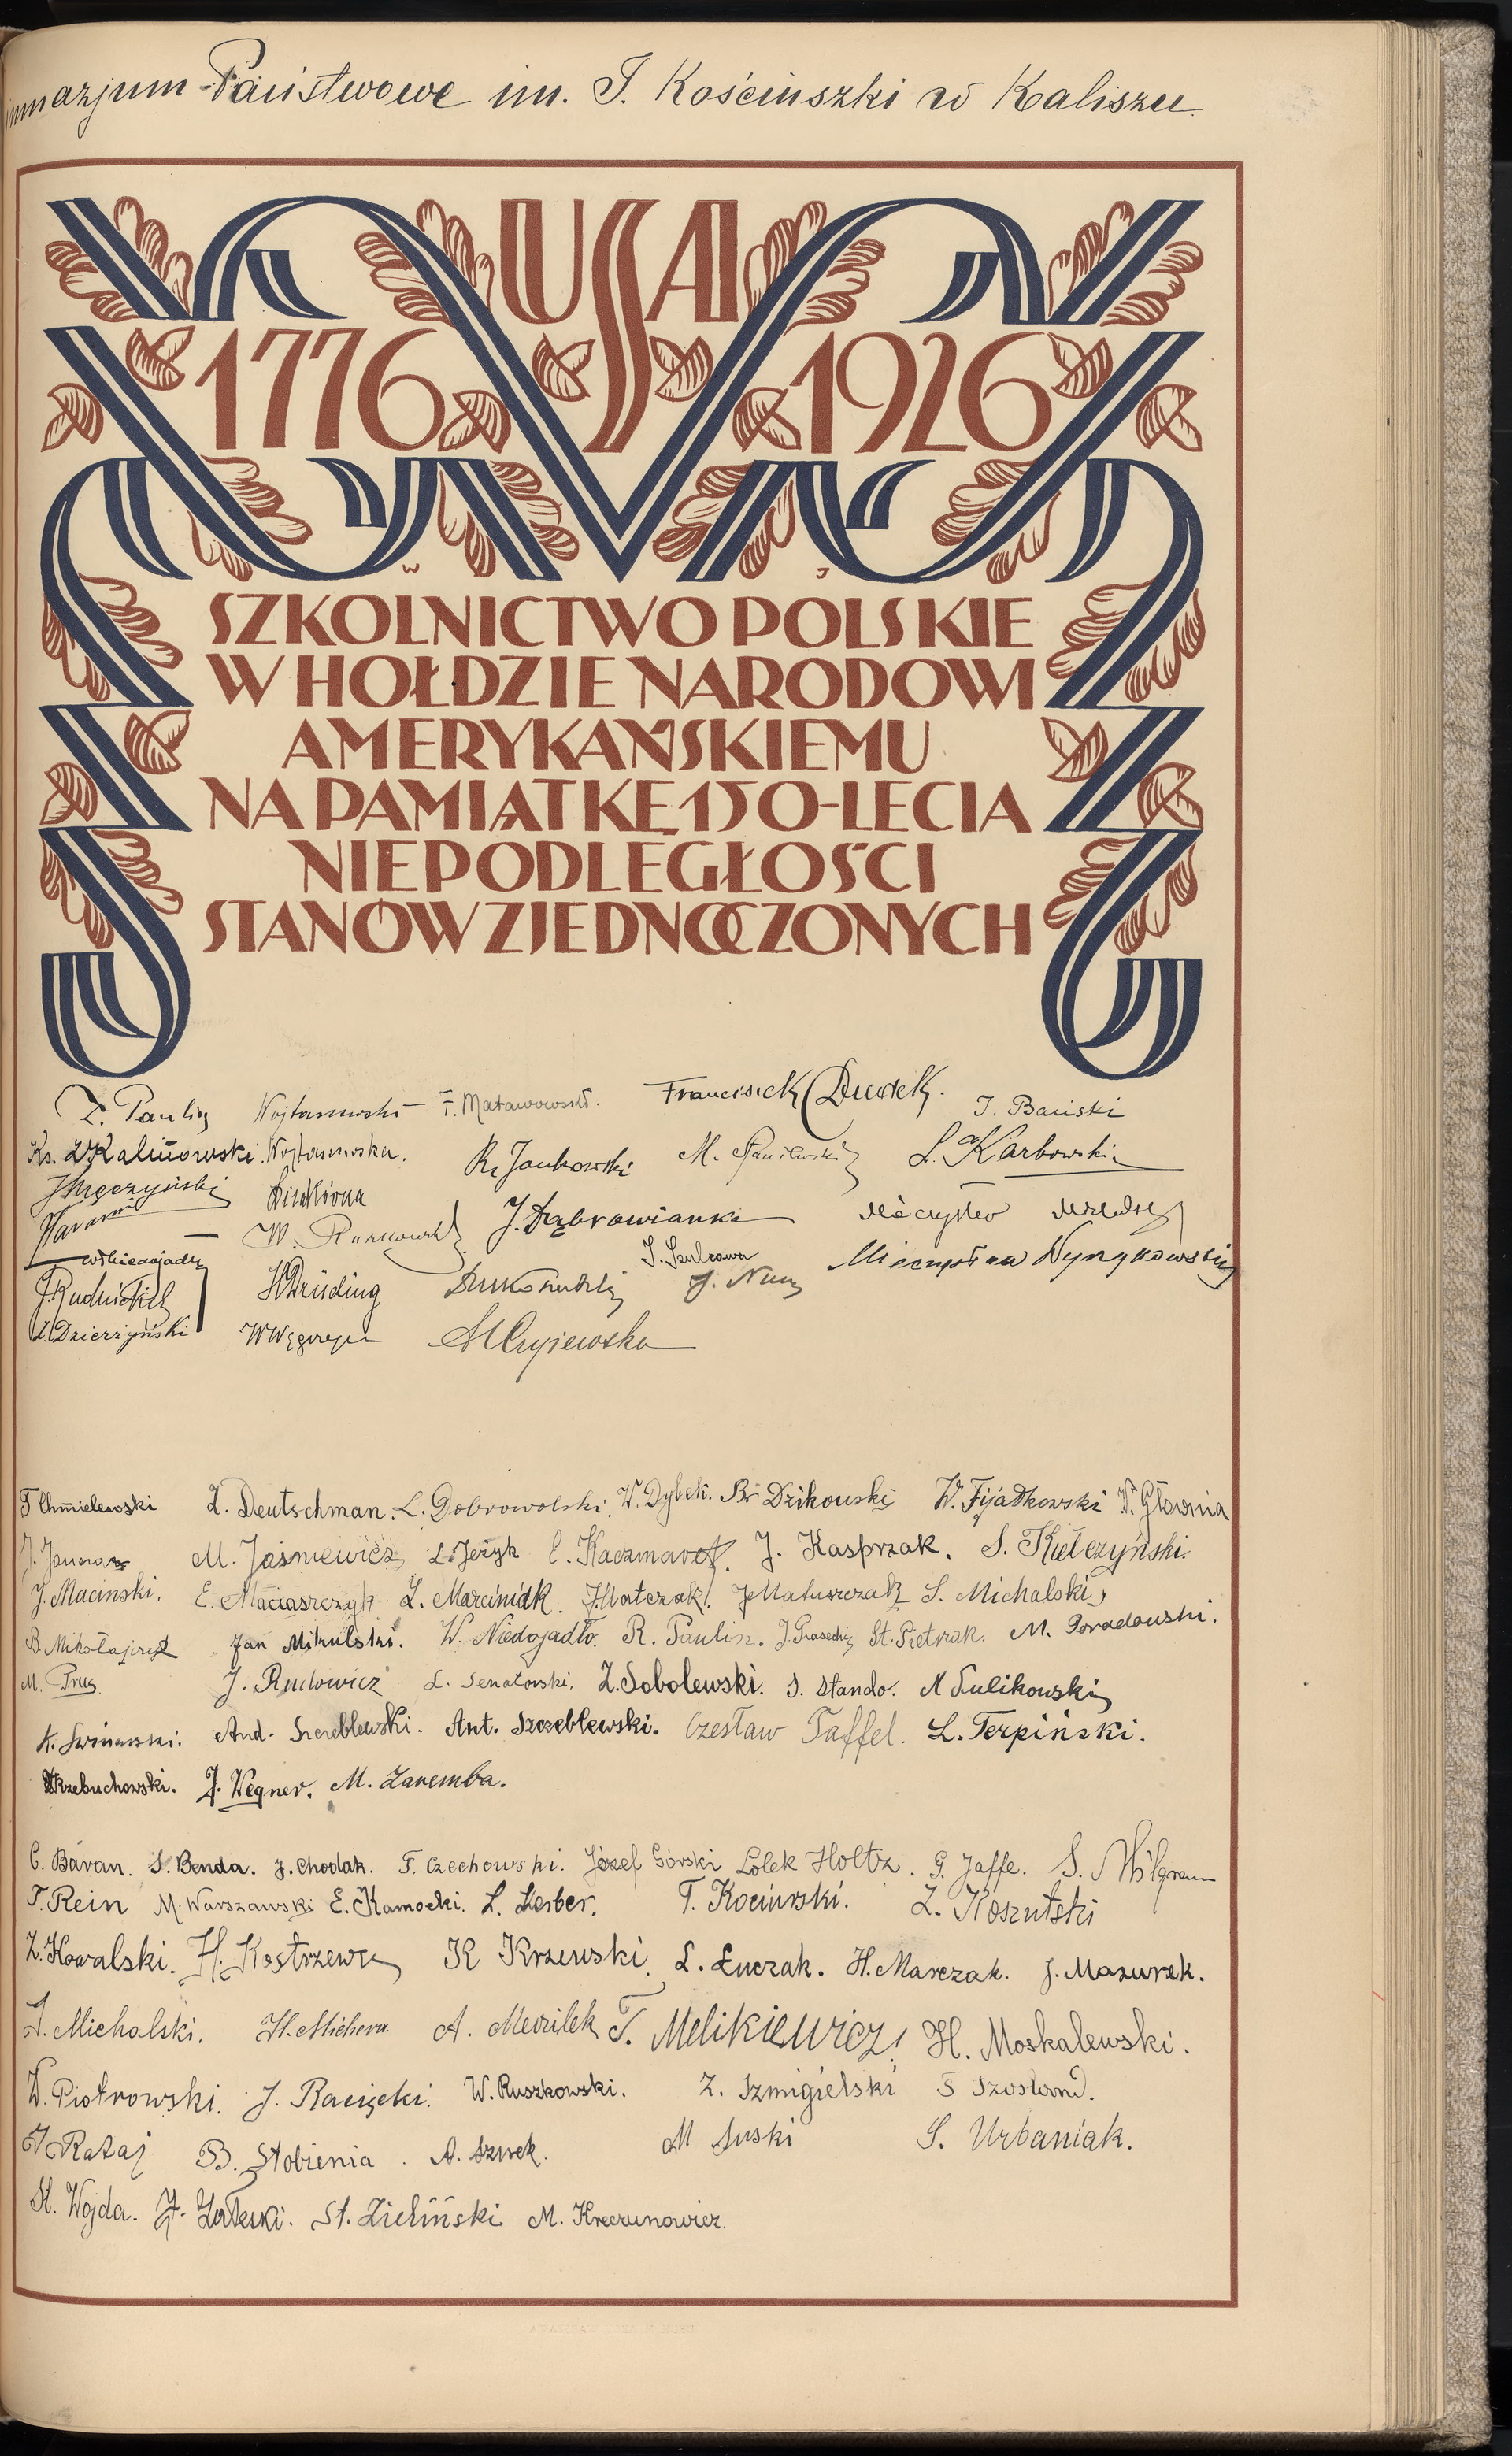 Państwowe im. T. Kościuszki w Kaliszu
USA
1776 1926
W J
SZKOLNICTWO POLSKIE
W HOŁDZIE NARODOWI
AMERYKAŃSKIEMU
NA PAMIĄTKĘ 150-LECIA
NIEPODLEGŁOŚCI
STANÓW ZJEDNOCZONYCH
Z. Paulin Wojtaszewski Franciszek Dudek. J. Bański
Ks. Kalinowski. R. Jankowski L. Karbowski
J. Dąbrowianka
Mieczysław Wyszykowski
J. Rudnicki
Z. Dzierżyński
T Chmielewski Z. Deutschman. L. Dobrowolski. W. Dybek. Br Dzikouski W. Fijałkowski W. Głownia
M. Jaśniewicz L. Jeżyk E. Kaczmarek. J. Kasprzak. S. Kiełczyński.
J. Macinski. E. Maciaszczyk Z. Marciniak. J. Matczak. J. Matuszczak S. Michalski,
B. Mikołajczyk Jan Mikulski. W. Niedojadło. R. Paulin. J. Piasecki St. Pietrzak. M. Poradowski.
M. Prus J. Rudowicz L. Senatorski. Z. Sobolewski. S. Stando. M Sulikowski
K. Swinarski. And. Szczeblewski. Ant. Szczeblewski. Czesław Taffel. L. Terpiński.
Trzebuchowski. J. Wegner. M. Zaremba.
C. Baran. S. Benda. J. Chodak. F. Czechowski. Józef Górski Lolek Holtz. G. Jaffe. S. Milgram
T. Rein M. Warszawski E. Kamocki. L. Kerber. T. Kociurski. Z. Koszutski
Z. Kowalski. H. Kostrzewa K Krzewski. L. Łuczak. H. Marczak. J. Mazurek.
J. Michalski. H. Michera. T. Melikiewicz H. Moskalewski.
W. Piotrowski. J. Racięcki. W. Ruszkowski. Z. Szmigielski S Szostand.
J Rataj B. Stobienia. A. Szurek. M Suski S. Urbaniak.
St. Wojda. St. Zieliński M. Kreczunowicz.